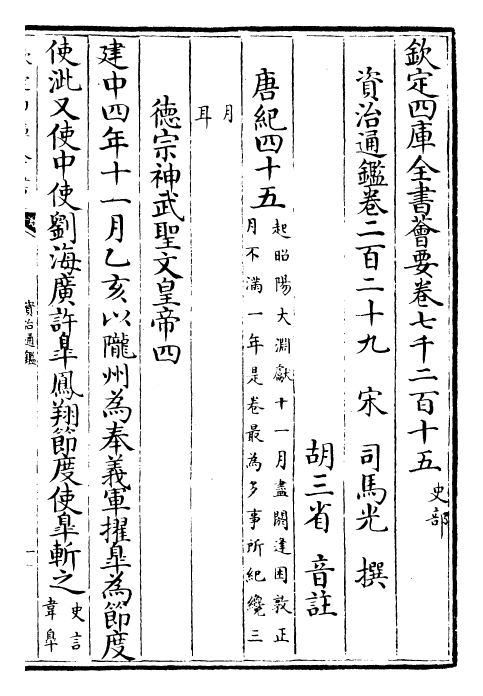 欽定四庫全書薈要卷七千二百十五 史部
資治通鑑卷二百二十九 宋 司馬光 撰
胡三省 音註
唐紀四十五 起昭陽大淵獻十一月盡閼逢困敦正
月不滿一年是卷最為多事所紀纔三
月
耳
德宗神武聖文皇帝四
建中四年十一月乙亥以隴州為奉義軍擢臯為節度
使泚又使中使劉海廣許臯鳳翔節度使臯斬之 史言
韋臯
資治通鑑
一